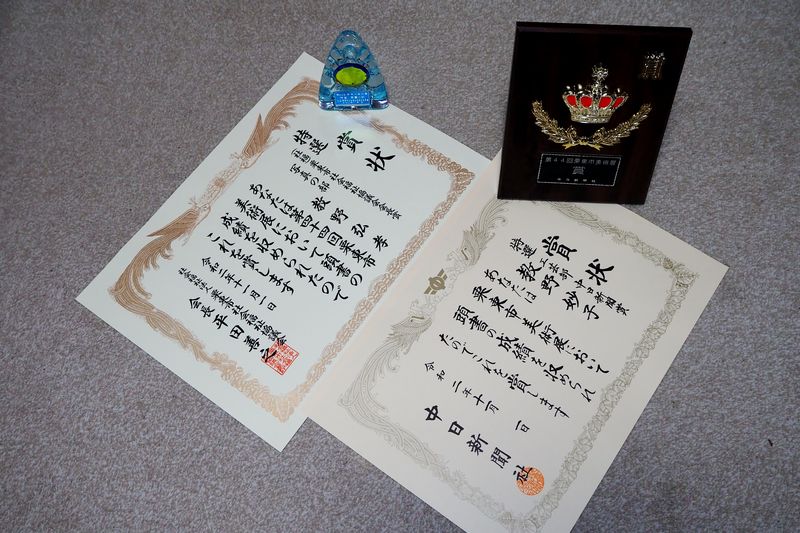 賞状
特選
社会福祉法人栗東市社会福祉協議会会長賞
写真の部
教野弘孝
あなたは第四十四回栗東市
美術展において頭書の
成績を収められたので
これを賞します
令和二年十一月一日
社会福祉法人栗東市社会福祉協議会
会長 平田善之
賞状
特選
中日新聞賞
工芸の部
教野妙子
あなたは
栗東市美術展において
頭書の成績を収められ
たのでこれを賞します
令和二年十一月一日
中日新聞社
賞